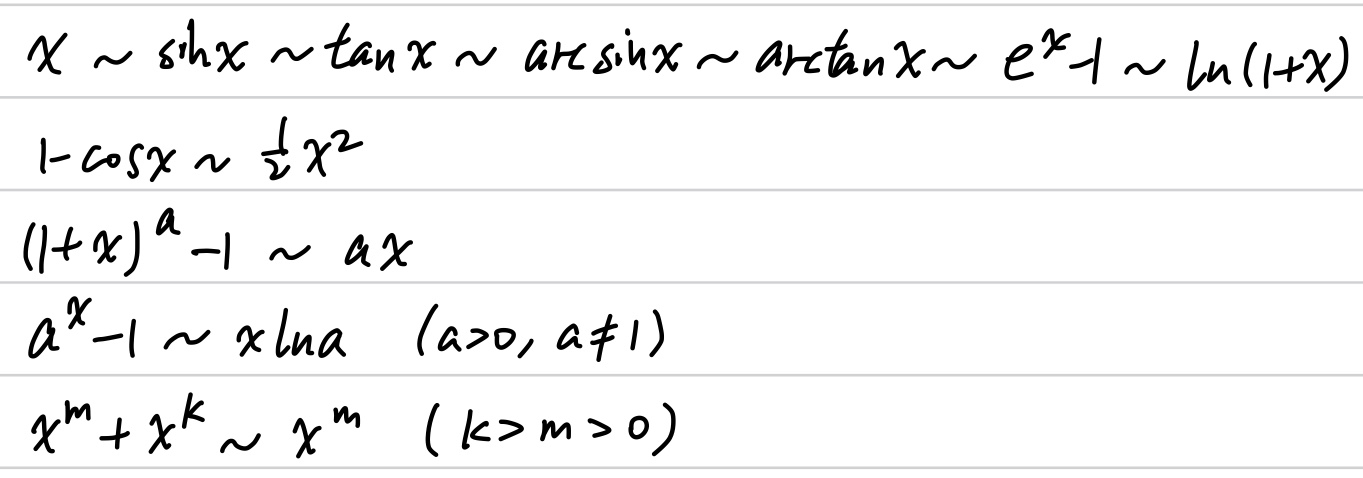 x ~ sinx ~ tanx ~ arcsinx ~ arctanx ~ eˣ-1 ~ ln(1+x)
1-cosx ~ ½x²
(1+x)ᵃ-1 ~ ax
aˣ-1 ~ xlna (a>0, a≠1)
xᵐ+xᵏ ~ xᵐ (k>m>0)